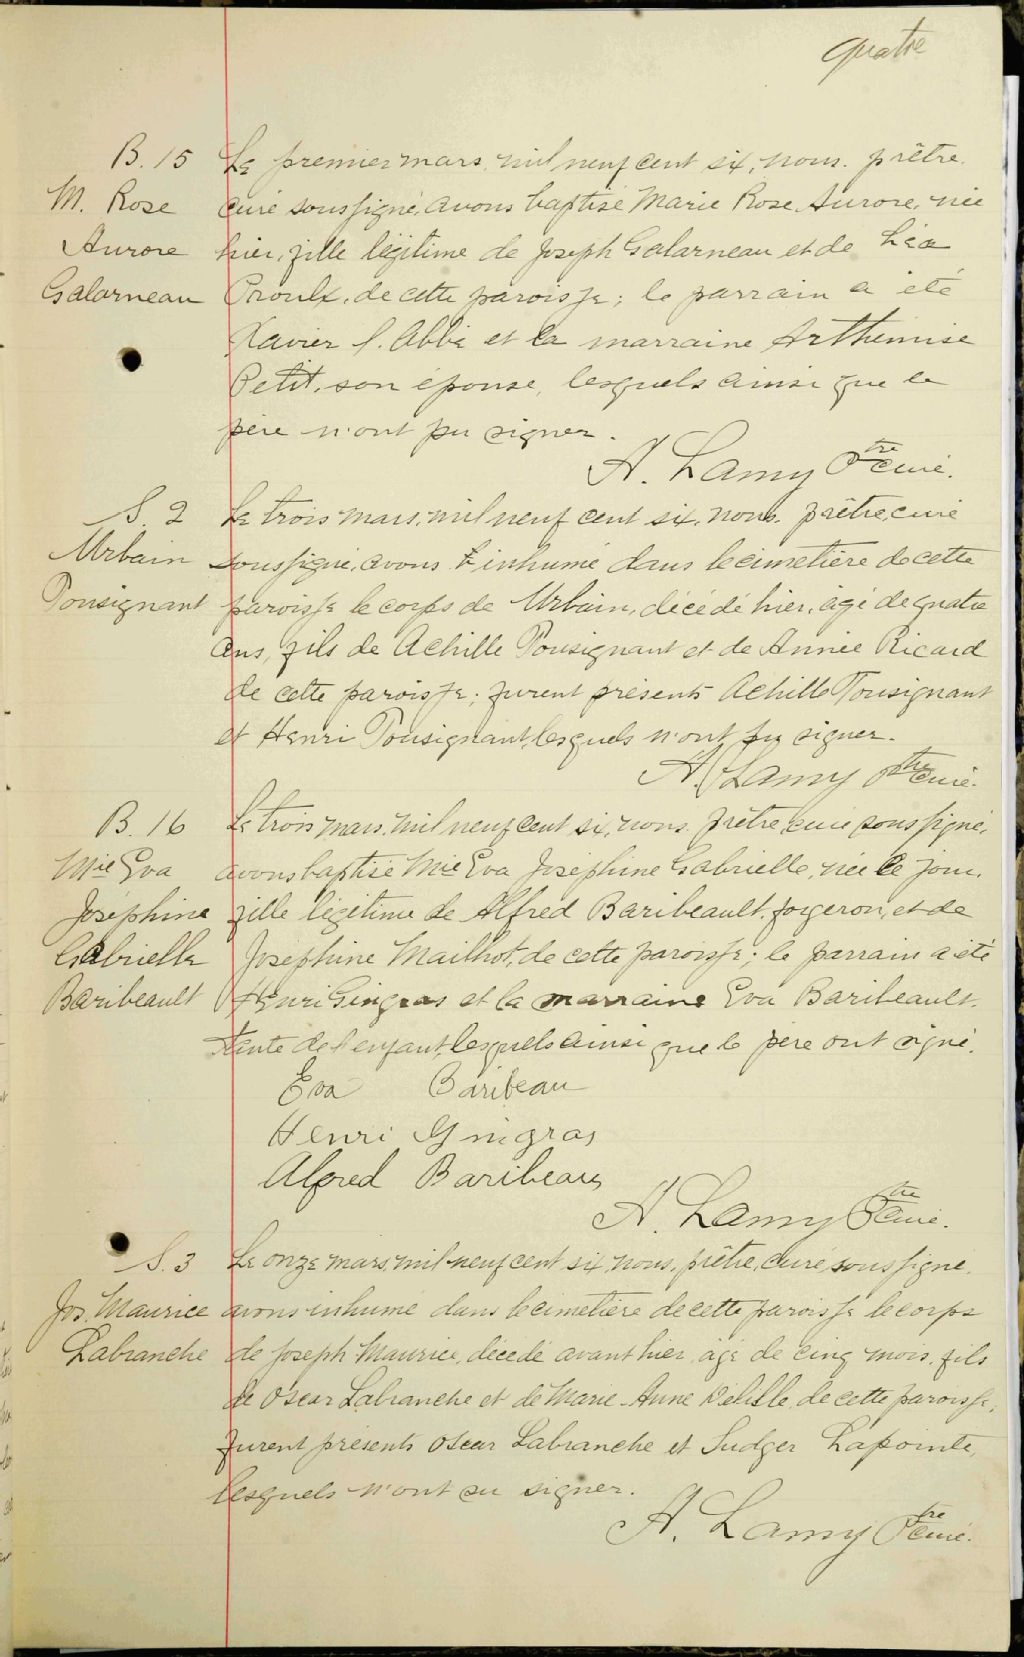 quatre
B. 15
M. Rose
Aurore
Galarneau
Le premier mars, mil neuf cent six, nous, prêtre,
curé soussigné, avons baptisé Marie Rose Aurore, née
hier, fille légitime de Joseph Galarneau et de Léa
Proulx, de cette paroisse; le parrain a été
Xavier l'Abbé et la marraine Arthémise
Petit, son épouse, lesquels ainsi que le
père n'ont pu signer.
A. Lamy Ptre curé.
S. 2
Urbain
Tousignant
Le trois mars, mil neuf cent six, nous, prêtre, curé
soussigné, avons inhumé dans le cimetière de cette
paroisse le corps de Urbain, décédé hier, âgé de quatre
ans, fils de Achille Tousignant et de Annie Ricard
de cette paroisse; furent présents Achille Tousignant
et Henri Tousignant, lesquels n'ont pu signer.
A. Lamy Ptre curé.
B. 16
Mie Eva
Joséphine
Gabrielle
Baribeault
Le trois mars, mil neuf cent six, nous, prêtre, curé soussigné,
avons baptisé Mie Eva Joséphine Gabrielle, née ce jour,
fille légitime de Alfred Baribeault, forgeron, et de
Joséphine Mailhot, de cette paroisse; le parrain a été
Henri Gingras et la marraine Eva Baribeault,
tante de l'enfant, lesquels ainsi que le père ont signé.
Eva Baribeau
Henri Gingras
Alfred Baribeau
A. Lamy Ptre curé.
S. 3
Jos. Maurice
Labranche
Le onze mars, mil neuf cent six, nous, prêtre, curé, soussigné,
avons inhumé dans le cimetière de cette paroisse le corps
de Joseph Maurice, décédé avant hier, âgé de cinq mois, fils
de Oscar Labranche et de Marie-Anne Delisle, de cette paroisse;
furent présents Oscar Labranche et Sudger Lapointe,
lesquels n'ont su signer.
A. Lamy Ptre curé.